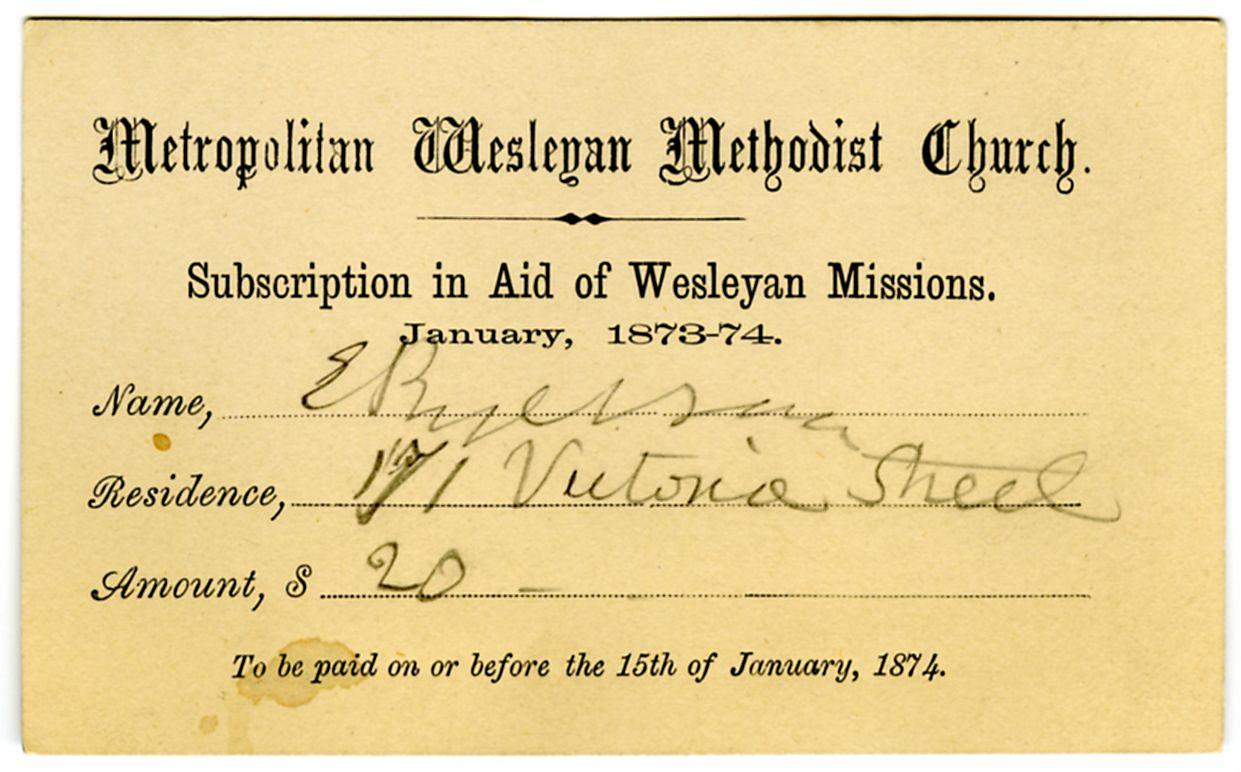 Metropolitan Wesleyan Methodist Church.
Subscription in Aid of Wesleyan Missions.
January, 1873-74.
Name, E Ryerson
Residence, 171 Victoria Street
Amount, $ 20 –
To be paid on or before the 15th of January, 1874.